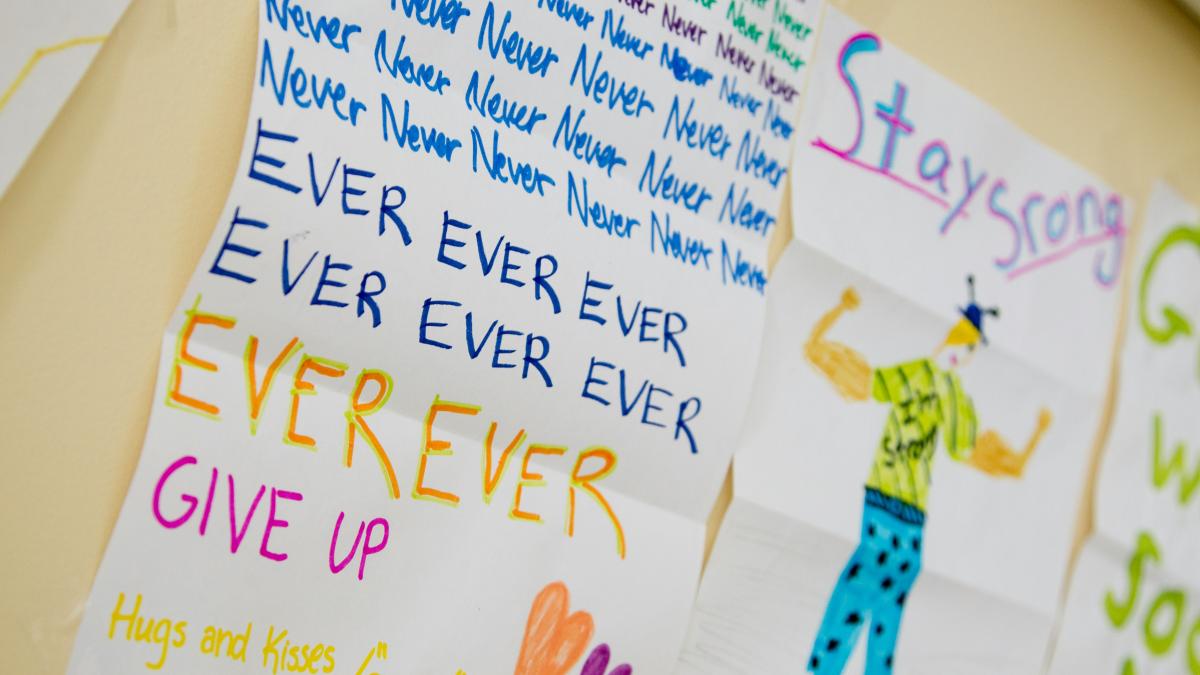 Never
Never Never
Never Never Never
Never Never Never Never Never
Never Never Never Never Never
Never Never Never Never Never Never
Never Never Never Never Never Never
EVER EVER EVER
EVER EVER EVER
EVER EVER
GIVE UP
Hugs and Kisses
Stay Srong
I'm
strong